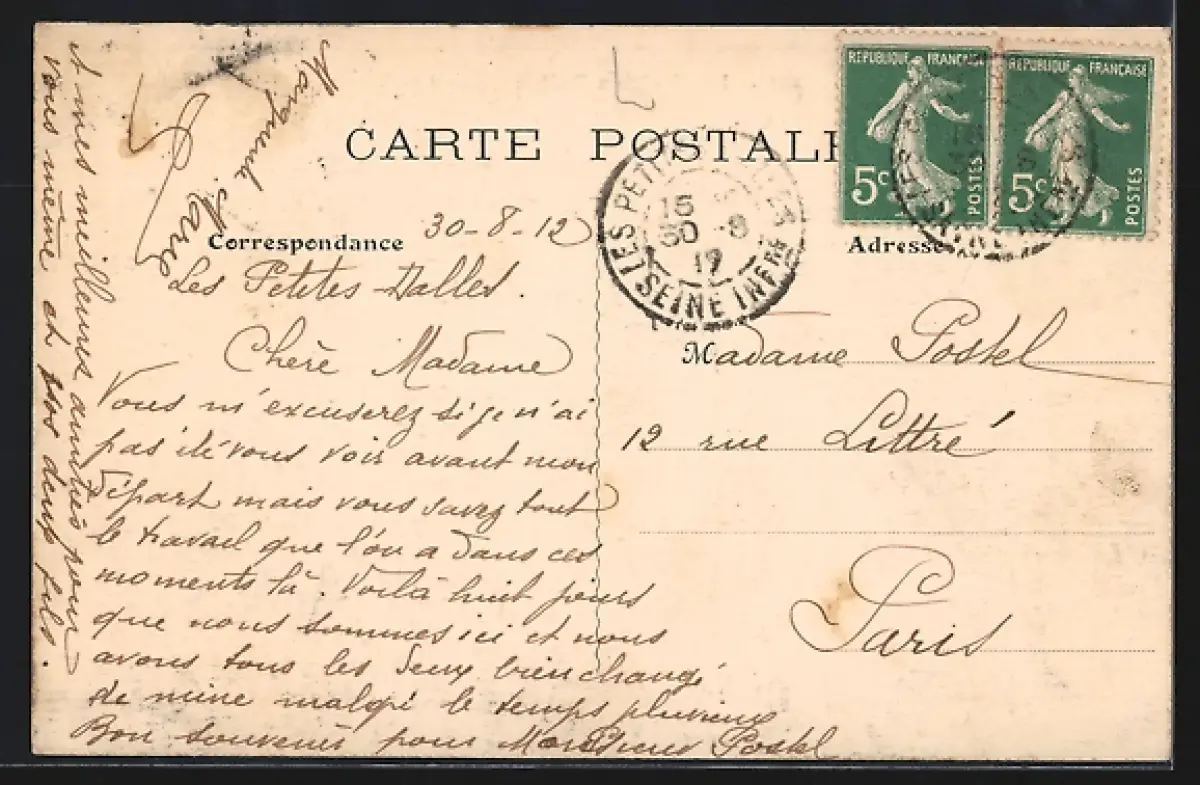 CARTE POSTALE
REPUBLIQUE FRANÇAISE
5c POSTES
REPUBLIQUE FRANÇAISE
5c POSTES
LES PETITES DALLES
15
30 -8
12
SEINE INFRE
Correspondance
30-8-12
Les Petites-Dalles.
Chère Madame
Vous m'excuserez si je n'ai
pas été vous voir avant mon
départ mais vous savez tout
le travail que l'on a dans ces
moments là. Voilà huit jours
que nous sommes ici et nous
avons tous les deux bien changé
de mine malgré le temps pluvieux
Bon souvenir pour Monsieur Postel
et mes meilleures amitiés pour
vous même et vos deux fils.
Adresse
Madame Postel
12 rue Littré
Paris